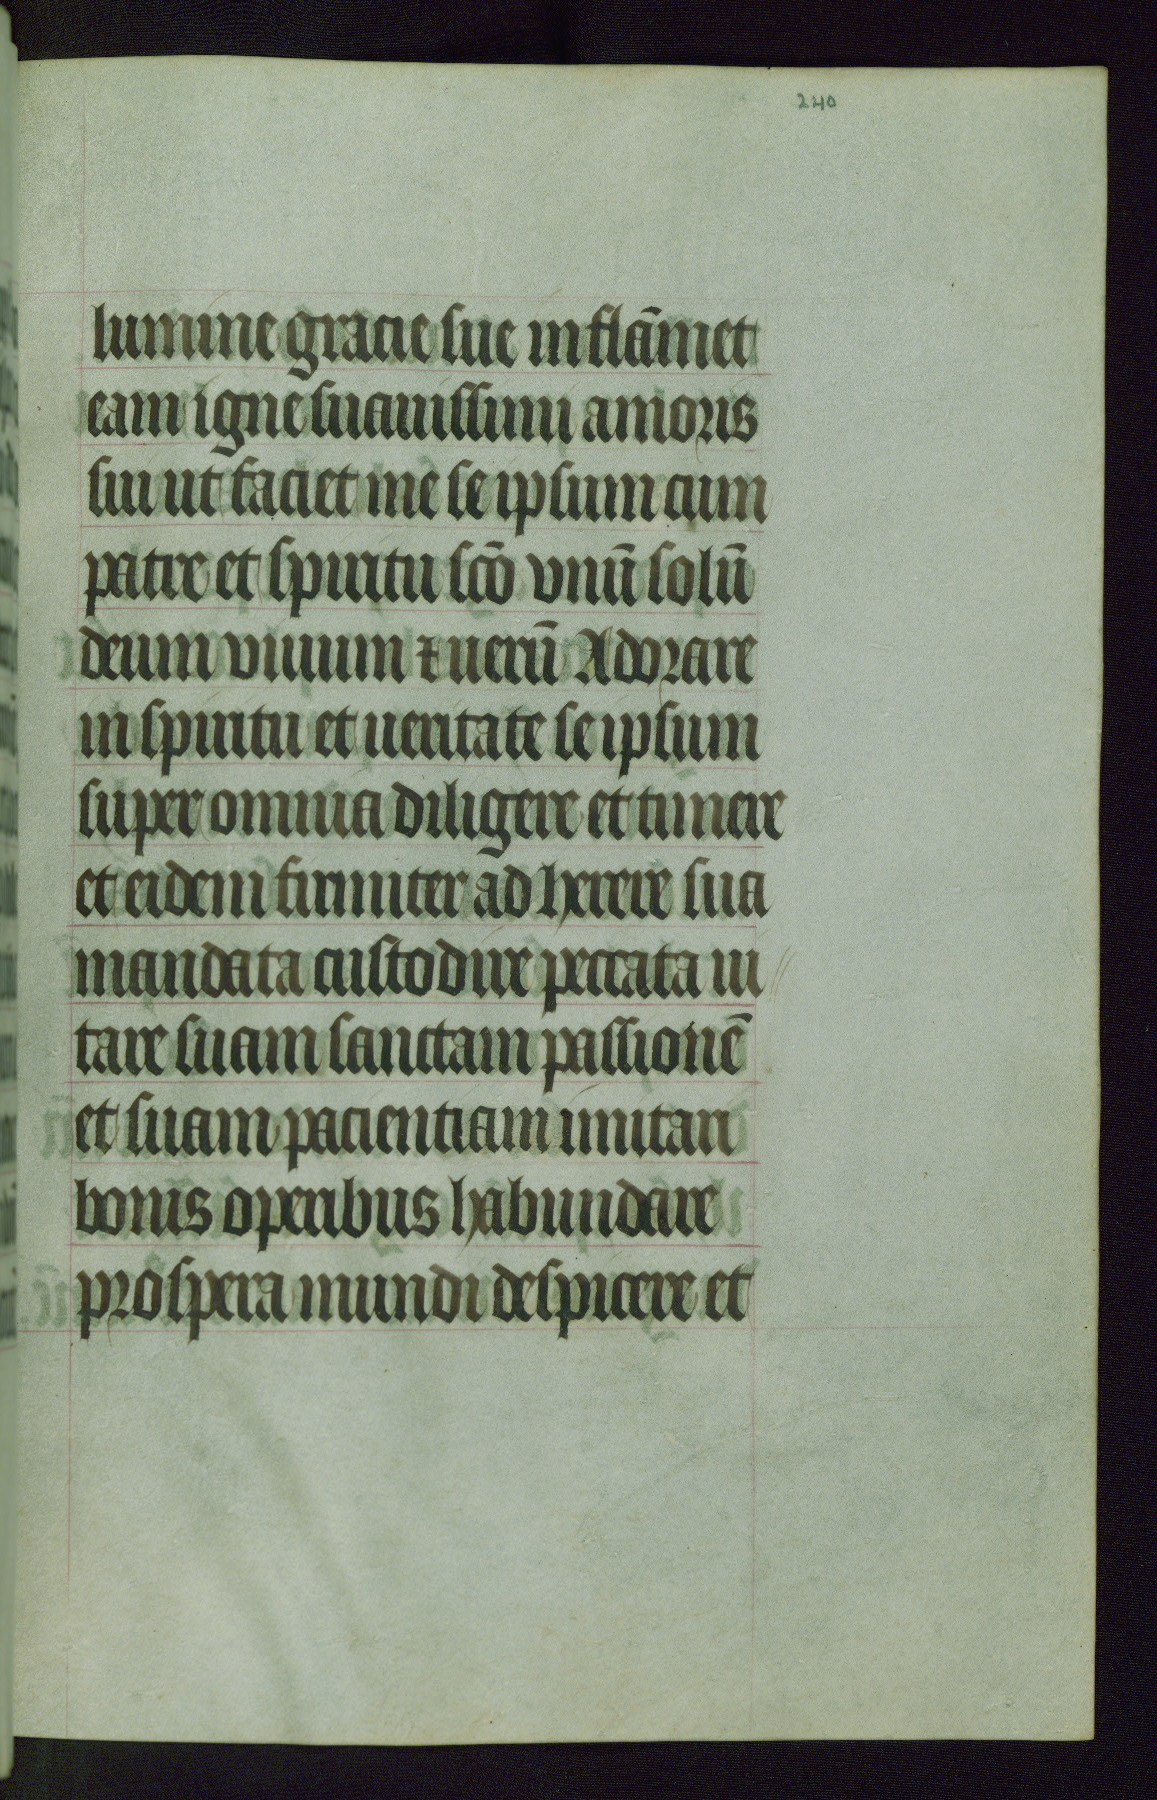 240
lumine gracie sue inflāmet
eam igne suauissimi amoris
sui ut faciet me se ipsum cum
patre et spiritu sco̅ vnū solū
deum viuum ⁊ uerū Adorare
in spiritu et ueritate se ipsum
super omnia diligere et timere
et eidem firmiter ad herere sua
mandata custodire peccata ui
tare suam sanctam passionē
et suam pacientiam imitari
bonis operibus habundare
prospera mundi despicere et